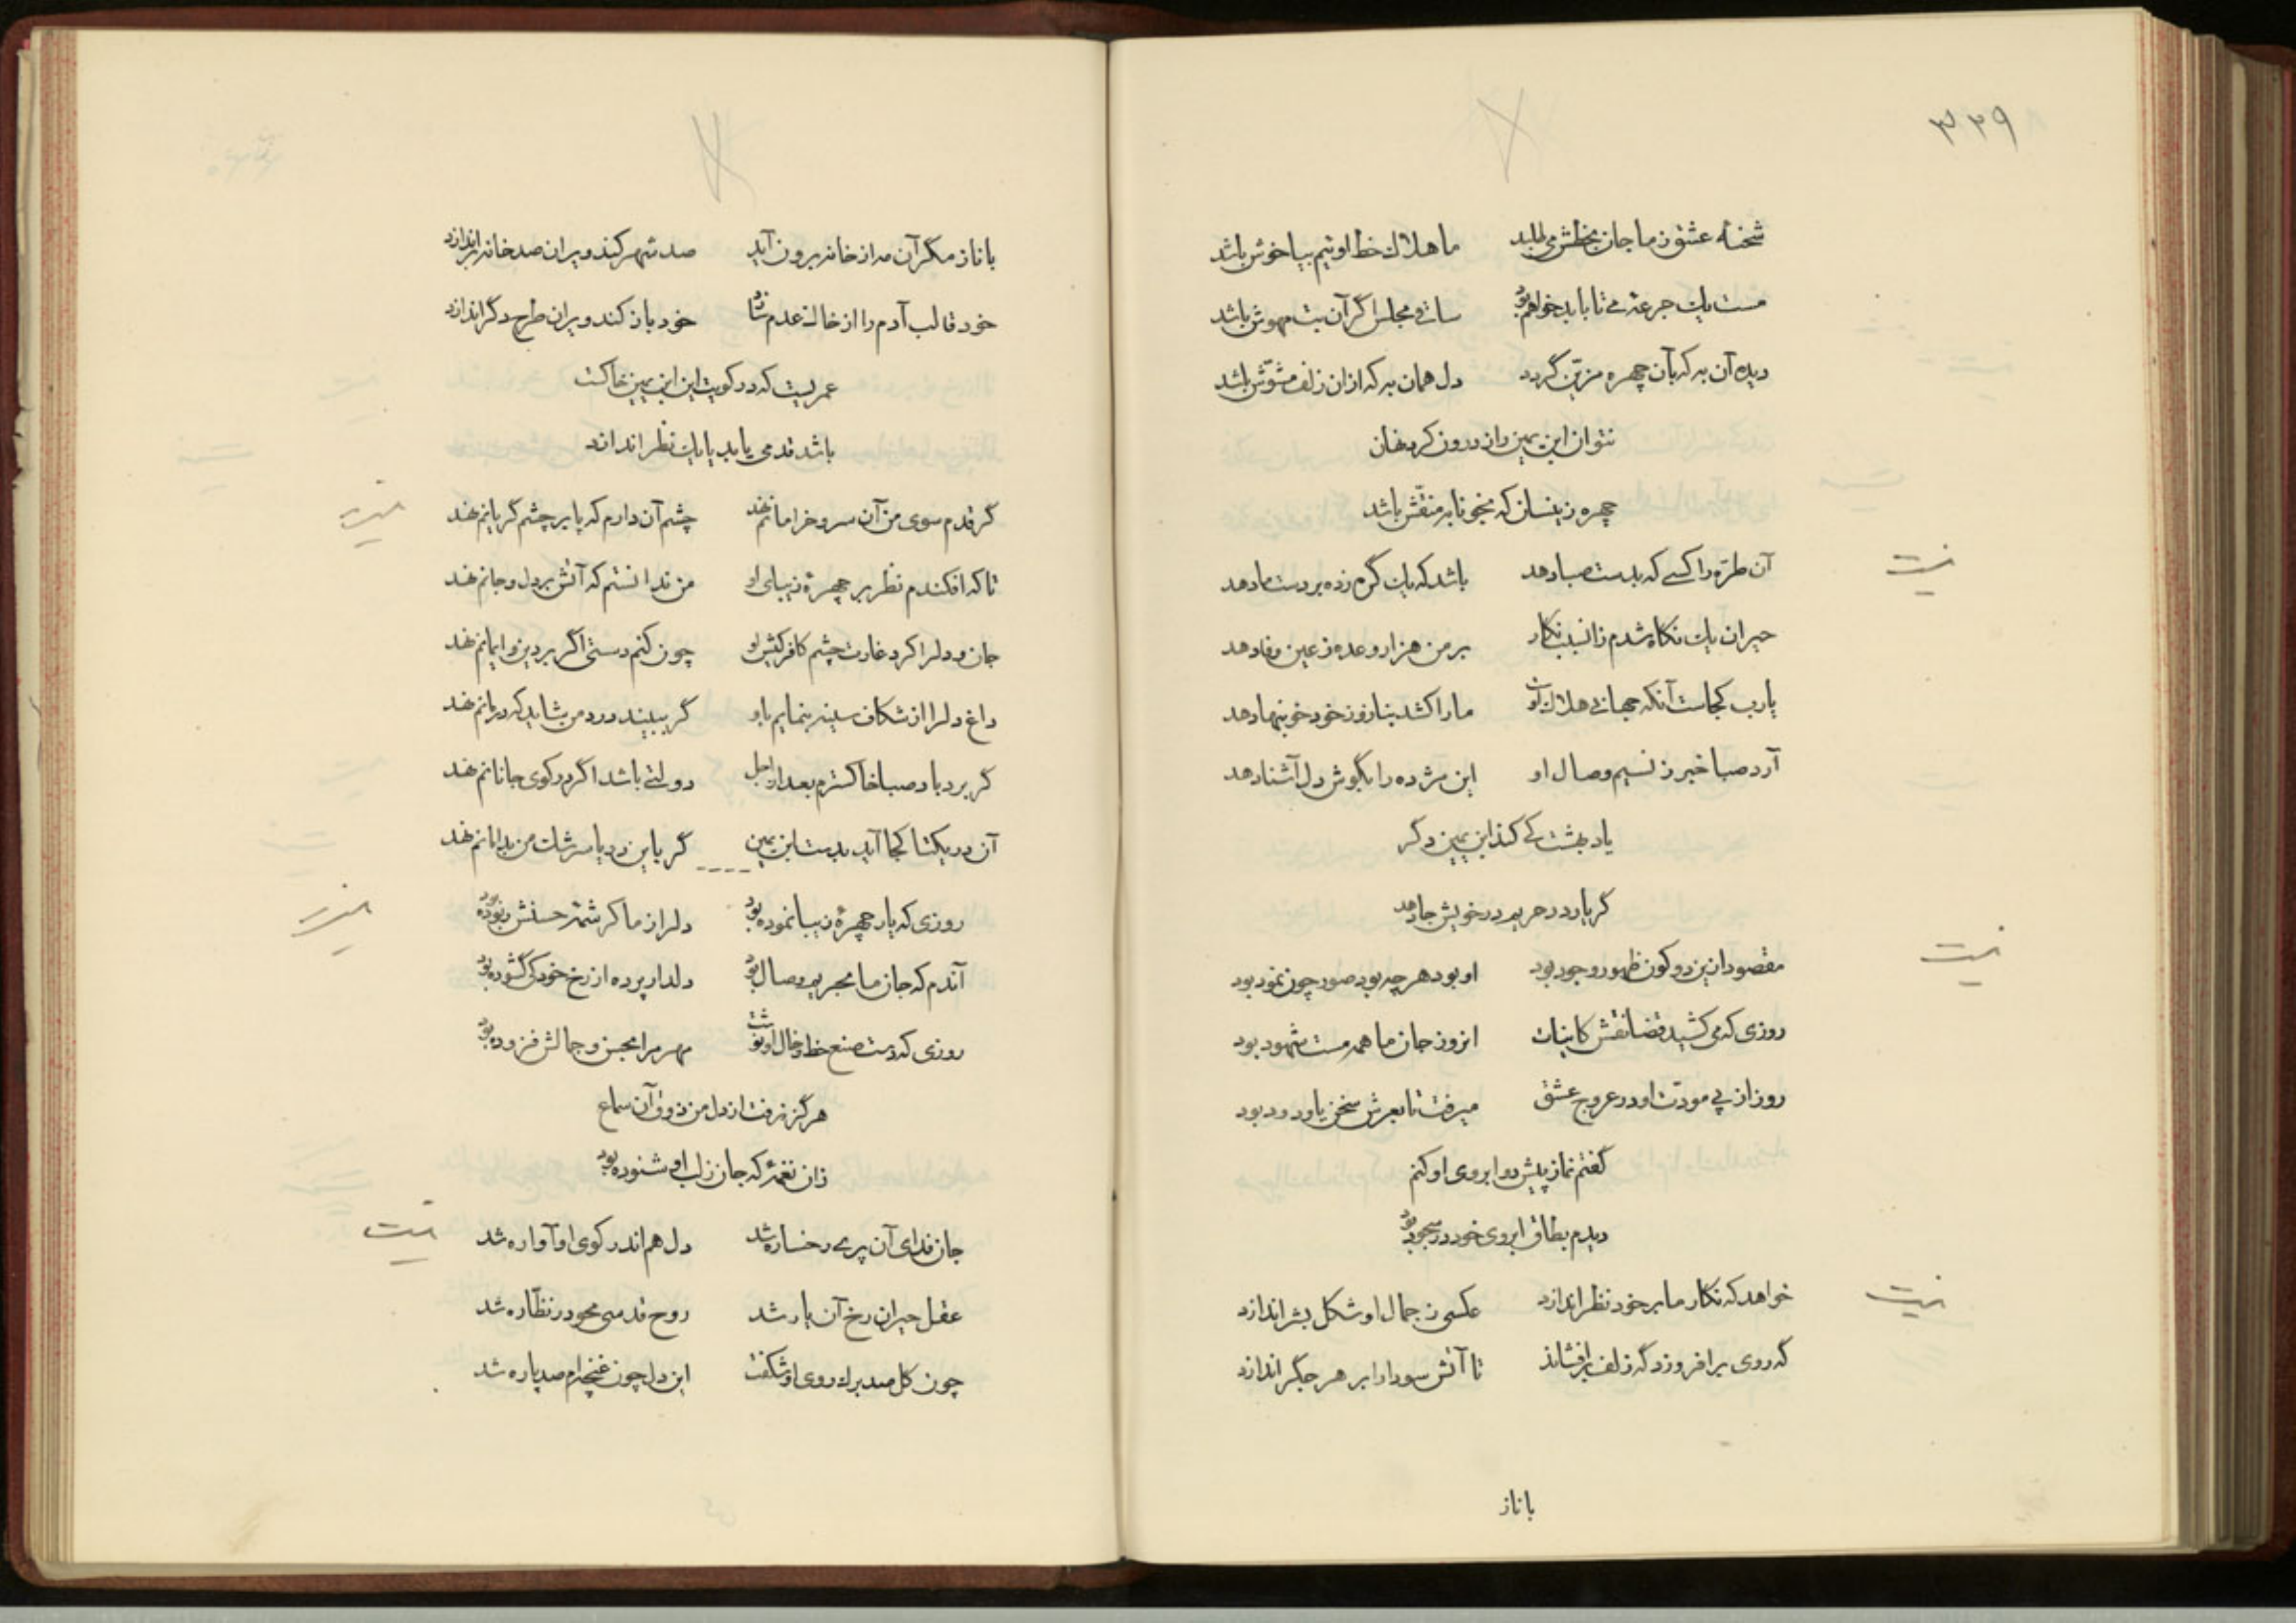 ۳۳۹
شحنهٔ عشق ز ما جان بخطش می طلبد ما هلاک خط اوئیم بیا خوش باشد
مست یک جرعهٔ می تا بابد خواهم بود ساقی مجلس اگر آن بت مهوش باشد
دیده آن به که بآن چهره مزیّن گردد دل همان به که ازان زلف مشوّش باشد
نتوان ابن یمین راز درون کرد نهان
چهره زینسان که بخونابه منقّش باشد
آن طرّه را کسی که بدست صبا دهد باشد که یک گره زده بر دست ما دهد
حیران یک نگاه شدم زانکه نگار بر من هزار وعده ز عین وفا دهد
یارب کجاست آنکه جهانی هلاک اوست ما را کشد بناز و ز خود خونبها دهد
آرد صبا خبر ز نسیم وصال او این مژده را بگوش دل آشنا دهد
یاد بهشت کی کند ابن یمین دگر
گر یار در حریم در خویش جا دهد
نیست
مقصود ازین دو کون ظهور وجود بود او بود هر چه بود صور چون نمود بود
روزی که می کشید قضا نقش کاینات انروز جان ما همه مست شهود بود
روز از پی مودّت او در عروج عشق میرفت تا بعرش سخن یا ودود بود
گفتم نماز پیش دو ابروی او کنم
دیدم بطاق ابروی خود در سجود بود
نیست
خواهد که نگار ما بر خود نظر اندازد عکسی ز جمال او شکل بشر اندازد
گه روی برافروزد گه زلف برافشاند تا آتش سودا را بر هر جگر اندازد
نیست
با ناز
با ناز مگر آن مه از خانه برون آید صد شهر کند ویران صد خانه براندازد
خود قالب آدم را از خاک عدم خود باز کند ویران طرح دگر اندازد
عمریست که در کویت این ابن یمین خاکست
باشد قدمی یابد یا یک نظر اندازد
گر قدم سوی من آن سرو خرامانم نهد چشم آن دارم که پا بر چشم گریانم نهد
تا که افکندم نظر بر چهرهٔ زیبای او من ندانستم که آتش بر دل و جانم نهد
جان و دل را کرد غارت چشم کافر کیش او چون کنم دستی اگر بر دین و ایمانم نهد
داغ دل را از شکاف سینه بنمایم باو گر ببیند درد من شاید که درمانم نهد
گر برد باد صبا خاکسترم بعد از اجل دولتی باشد اگر در کوی جانانم نهد
آن در یکتا کجا آید بدست ابن یمین گر باین دریا سرشک من بدامانم نهد
روزی که یار چهرهٔ زیبا نموده بود دل را ز ما کرشمهٔ حسنش ربوده بود
آندم که جان ما بحریم وصال بود دلدار پرده از رخ خود کی گشوده بود
روزی که دست صنع خط و خال او نوشت مهر مرا بحسن و جمالش فزوده بود
هرگز نرفت از دل من ذوق آن سماع
زان نغمهٔ که جان ز لب او شنوده بود
جان فدای آن پری رخساره شد دل هم اندر کوی او آواره شد
نیست
عقل حیران رخ آن یار شد روح قدسی محو در نظّاره شد
چون گل صد برگ روی او شکفت این دل چون غنچه‌ام صد پاره شد